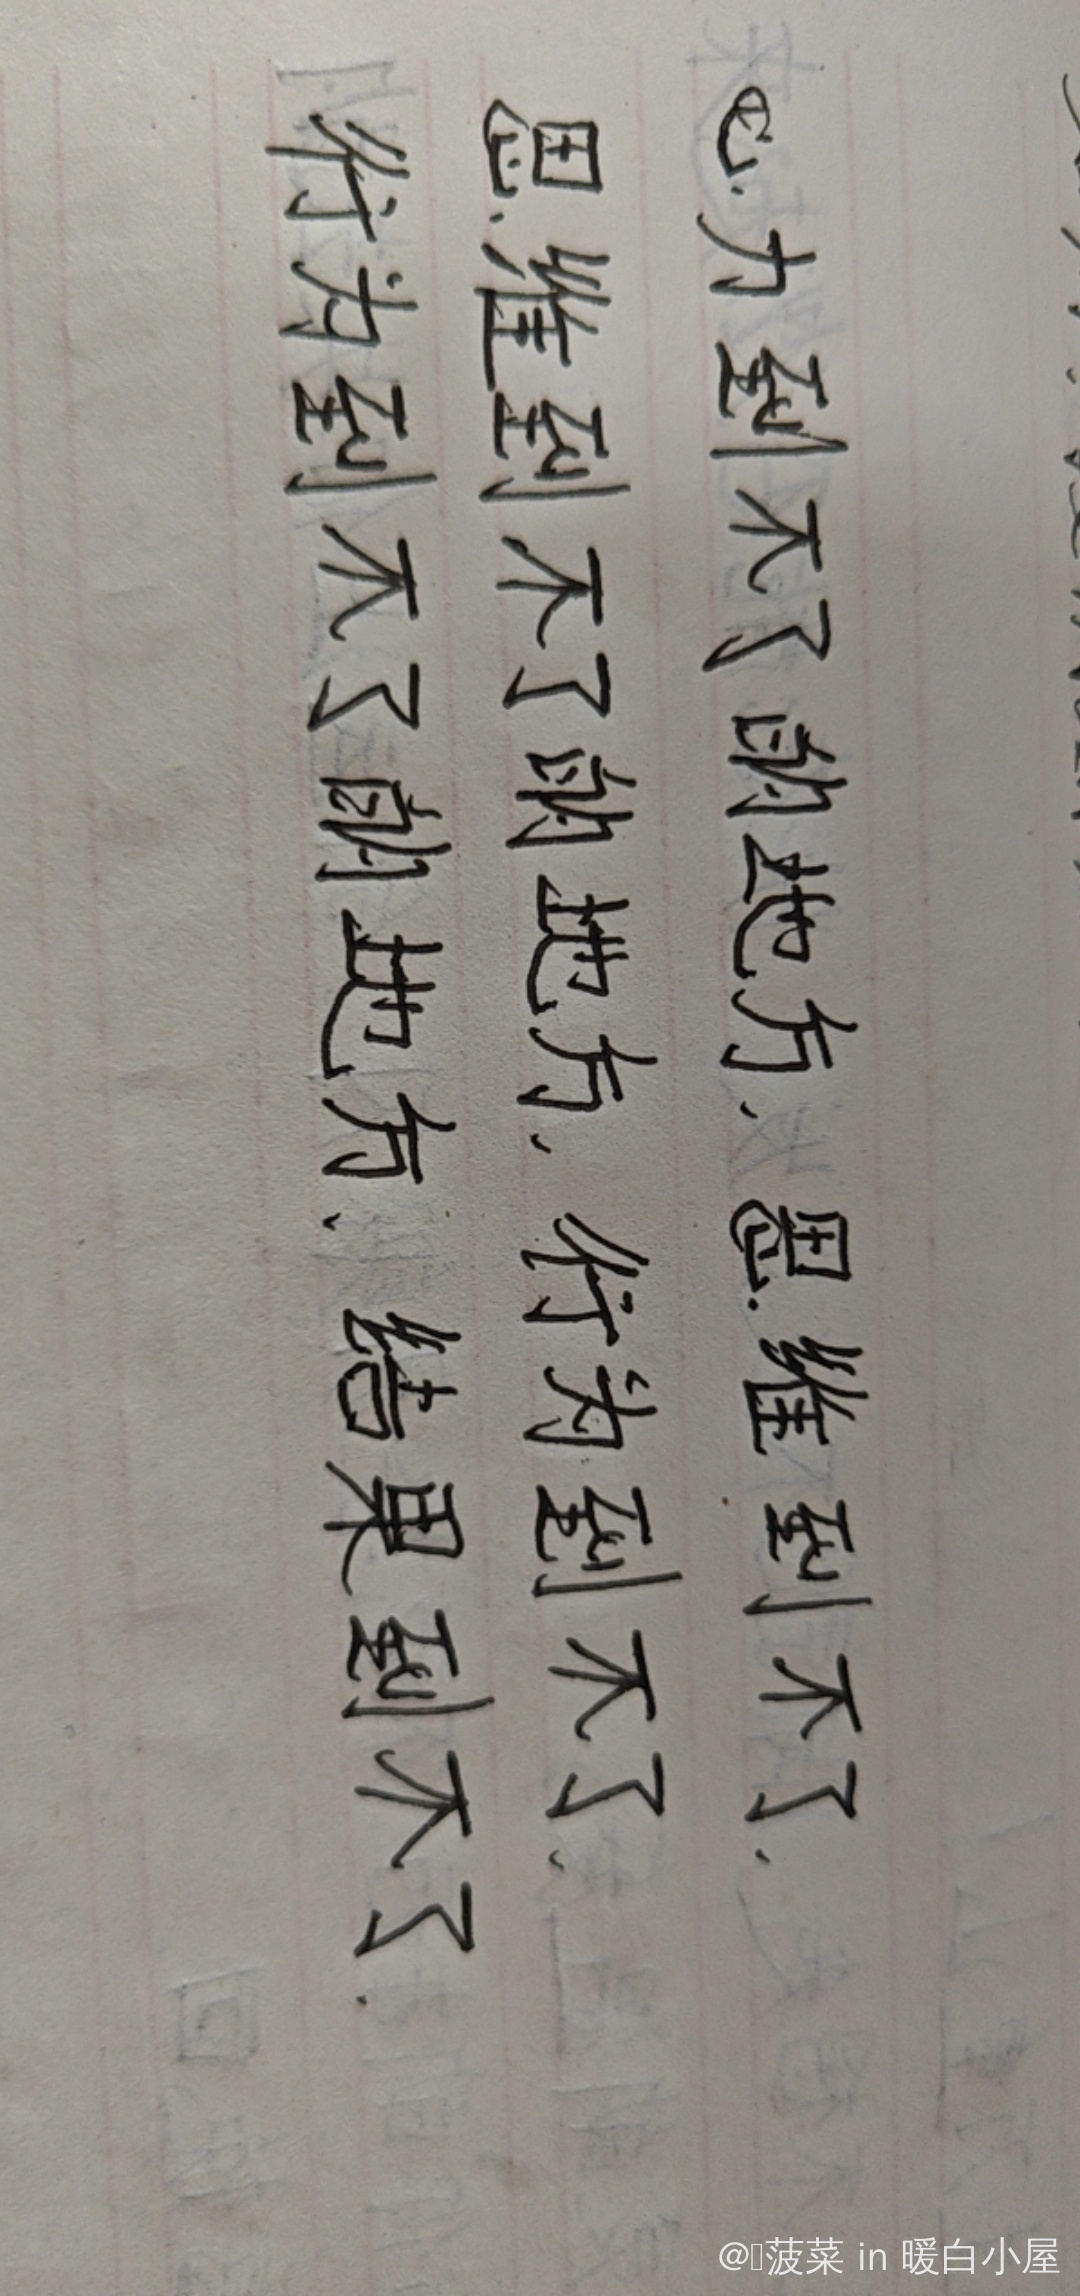 心力到不了的地方、思维到不了、
思维到不了的地方、行为到不了、
行为到不了的地方、结果到不了.
@菠菜 in 暖白小屋